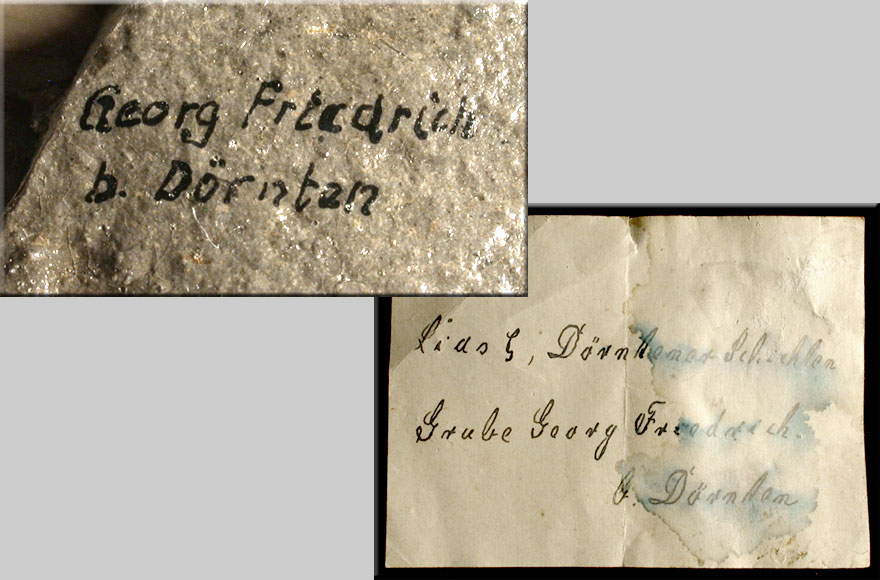 Georg Friedrich
b. Dörnten
Lias ζ, Dörntener Schichten
Grube Georg Friedrich
b. Dörnten